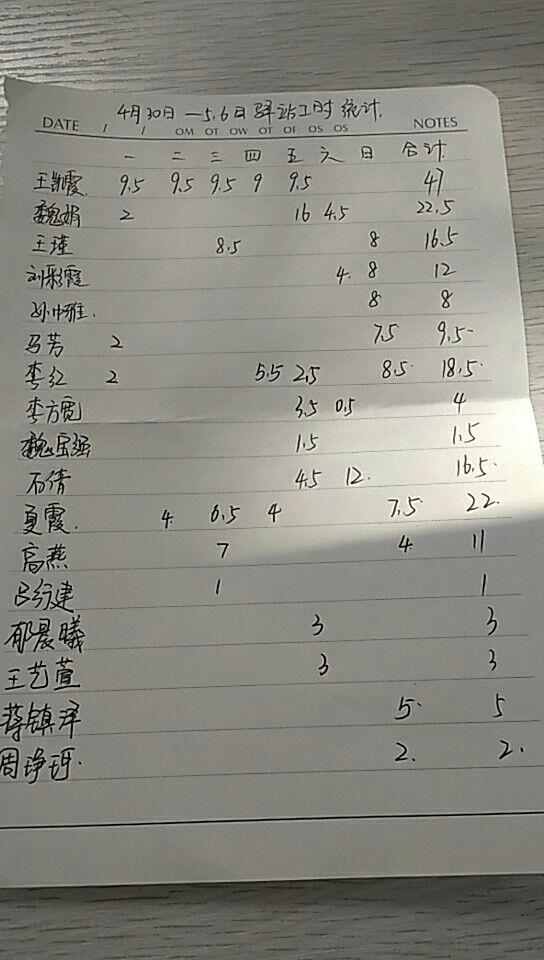 4月30日—5.6日驿站工时统计.
DATE / / OM OT OW OT OF OS OS NOTES
一 二 三 四 五 六 日 合计
王凯霞 9.5 9.5 9.5 9 9.5 47
魏娟 2 16 4.5 22.5
王瑾 8.5 8 16.5
刘彩霞 4 8 12
孙中雅. 8 8
马芳 2 7.5 9.5
李红 2 5.5 2.5 8.5 18.5
李方宽 3.5 0.5 4
魏 1.5 1.5
石倩 4.5 12. 16.5
夏霞. 4 6.5 4 7.5 22
高燕 7 4 11
吕行建 1 1
郁晨曦 3 3
王艺萱 3 3
蒋镇泽 5 5
周琤珂. 2. 2.